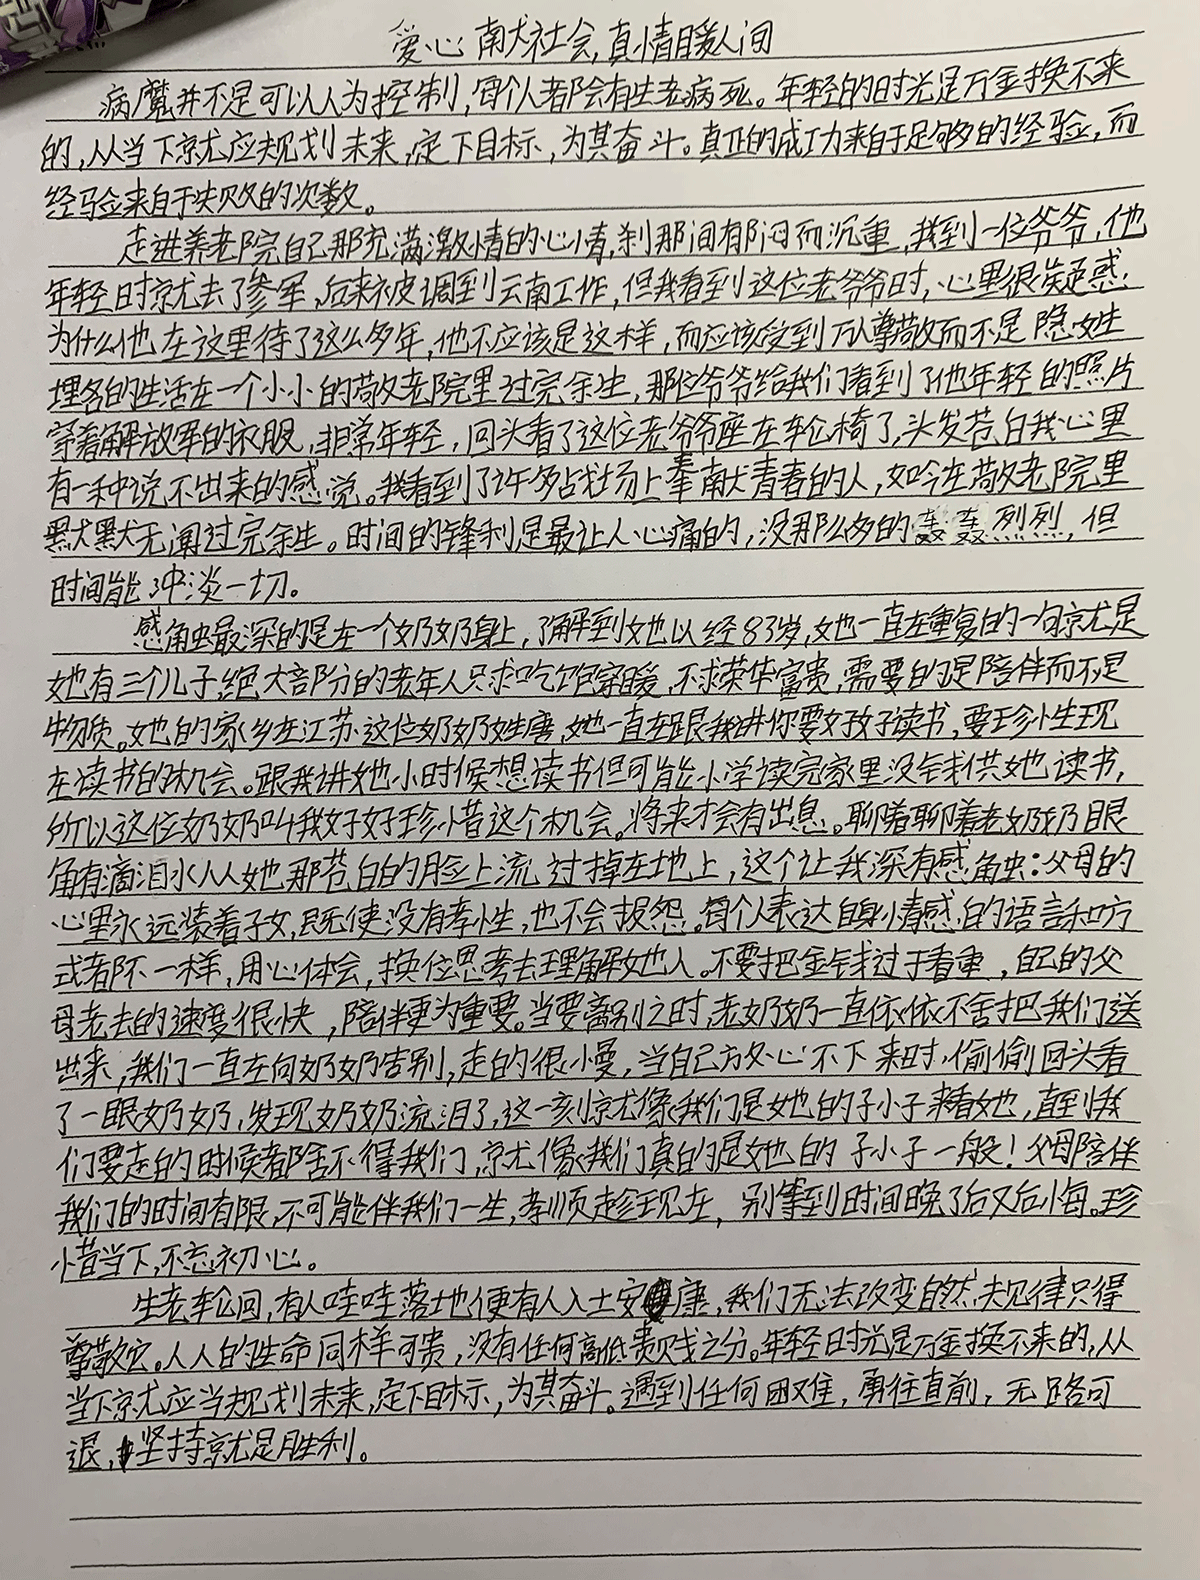 爱心献社会,真情暖人间
病魔并不是可以人为控制,每个人都会有生老病死。年轻的时光是万金换不来
的,从当下就应规划未来,定下目标,为其奋斗。真正的成功来自于足够多的经验,而
经验来自于失败的次数。
走进养老院自己那充满激情的心情,刹那间郁闷而沉重,找到一位爷爷,他
年轻时就去了参军,后来被调到云南工作,但我看到这位老爷爷时,心里很疑惑:
为什么他在这里待了这么多年,他不应该是这样,而应该受到万人尊敬而不是隐姓
埋名的生活在一个小小的敬老院里过完余生,那位爷爷给我们看到了他年轻的照片
穿着解放军的衣服,非常年轻,回头看了这位老爷爷座在轮椅了,头发苍白我心里
有一种说不出来的感觉。我看到了许多战场上奉献青春的人,如今在敬老院里
默默无闻过完余生。时间的锋利是最让人心痛的,没那么多的轰轰烈烈,但
时间能冲淡一切。
感触最深的是在一个奶奶身上,了解到她以经83岁,她一直在重复的一句就是
她有三个儿子,绝大部分的老年人只求吃饱穿暖,不求荣华富贵,需要的是陪伴而不是
物质。她的家乡在江苏这位奶奶姓唐,她一直在跟我讲你要好好读书,要珍惜现
在读书的机会。跟我讲她小时候想读书但可能小学读完家里没钱供她读书,
所以这位奶奶叫我好好珍惜这个机会。将来才会有出息。聊着聊着老奶奶眼
角有滴泪水从她那苍白的脸上流过掉在地上,这个让我深有感触:父母的
心里永远装着子女,既使没有孝性,也不会报怨。每个人表达自身情感的语言和方
式都不一样,用心体会,换位思考去理解她人。不要把金钱过于看重,自己的父
母老去的速度很快,陪伴更为重要。当要离别之时,老奶奶一直依依不舍把我们送
出来,我们一直在向奶奶告别,走的很慢,当自己放心不下来时,偷偷回头看
了一眼奶奶,发现奶奶流泪了,这一刻就像我们是她的子小子来看她,直到我
们要走的时候都舍不得我们,就像我们真的是她的子小子一般!父母陪伴
我们的时间有限,不可能伴我们一生,孝顺趁现在,别等到时间晚了后又后悔。珍
惜当下,不忘初心。
生老轮回,有人哇哇落地便有人入土安康,我们无法改变自然规律只得
尊敬它。人人的生命同样可贵,没有任何高低贵贱之分。年轻时光是万金换不来的,从
当下就应当规划未来,定下目标,为其奋斗。遇到任何困难,勇往直前,无路可
退,坚持就是胜利。